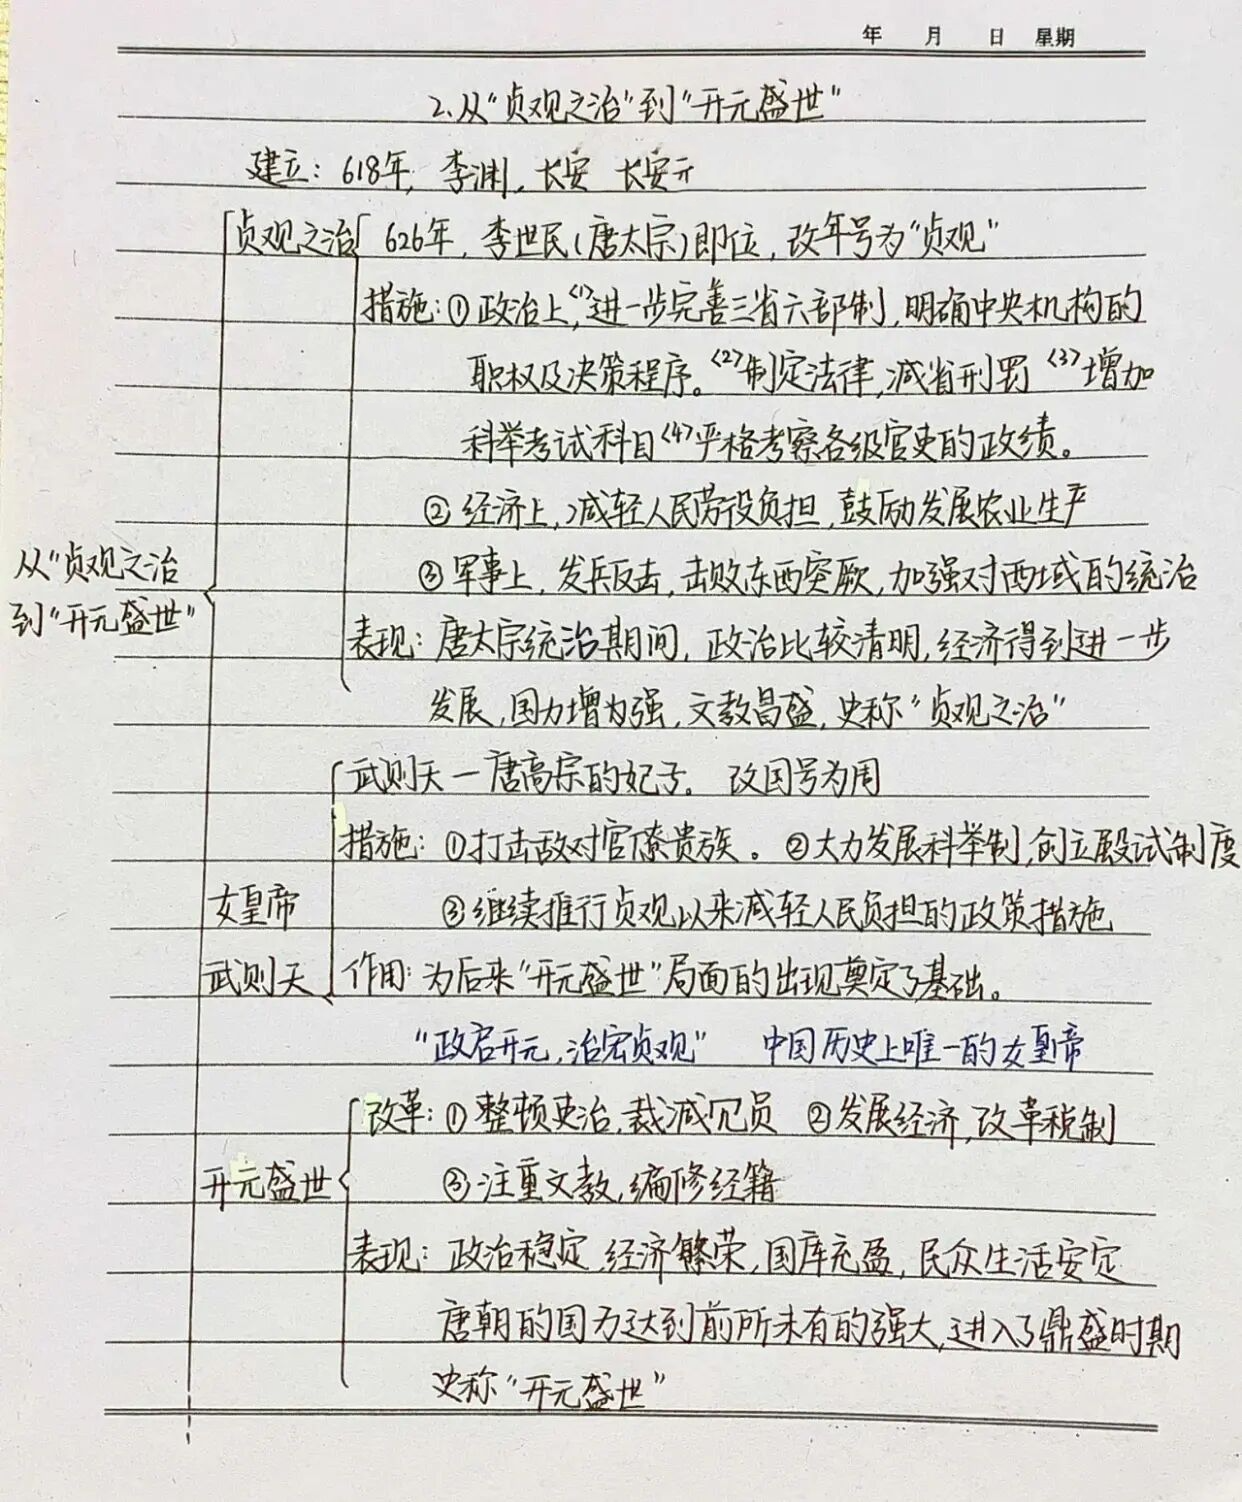 年 月 日 星期
2.从"贞观之治"到"开元盛世"
建立：618年，李渊，长安 长安
贞观之治 626年，李世民（唐太宗）即位，改年号为"贞观"
措施：①政治上，<1>进一步完善三省六部制，明确中央机构的
职权及决策程序。<2>制定法律，减省刑罚 <3>增加
科举考试科目<4>严格考察各级官吏的政绩。
②经济上，减轻人民劳役负担，鼓励发展农业生产
③军事上，发兵反击，击败东西突厥，加强对西域的统治
从"贞观之治
到"开元盛世"
表现：唐太宗统治期间，政治比较清明，经济得到进一步
发展，国力增为强，文教昌盛，史称"贞观之治"
武则天—唐高宗的妃子。 改国号为周
措施：①打击敌对官僚贵族。②大力发展科举制，创立殿试制度
女皇帝 ③继续推行贞观以来减轻人民负担的政策措施
武则天 作用：为后来"开元盛世"局面的出现奠定了基础。
"政启开元，治宏贞观" 中国历史上唯一的女皇帝
改革：①整顿吏治，裁减冗员 ②发展经济，改革税制
开元盛世 ③注重文教，编修经籍
表现：政治稳定，经济繁荣，国库充盈，民众生活安定
唐朝的国力达到前所未有的强大，进入了鼎盛时期
史称"开元盛世"